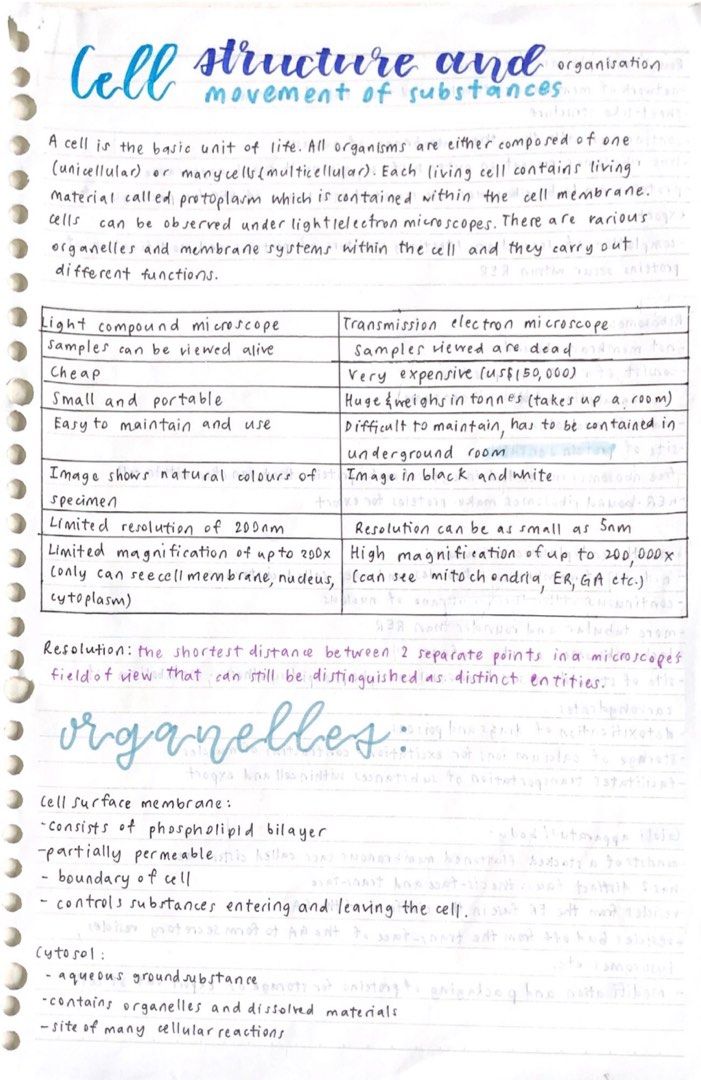 Cell structure and organisation
movement of substances
A cell is the basic unit of life. All organisms are either composed of one
(unicellular) or many cells (multicellular). Each living cell contains living
material called protoplasm which is contained within the cell membrane.
cells can be observed under light/electron microscopes. There are various
organelles and membrane systems within the cell and they carry out
different functions.
Light compound microscope | Transmission electron microscope
Samples can be viewed alive | Samples viewed are dead
Cheap | Very expensive (US$150,000)
Small and portable | Huge & weighs in tonnes (takes up a room)
Easy to maintain and use | Difficult to maintain, has to be contained in
underground room
Image shows natural colours of | Image in black and white
specimen
Limited resolution of 200nm | Resolution can be as small as 5nm
Limited magnification of up to 200x | High magnification of up to 200,000x
(only can see cell membrane, nucleus, | (can see mitochondria, ER, GA etc.)
cytoplasm)
Resolution: the shortest distance between 2 separate points in a microscope's
field of view that can still be distinguished as distinct entities.
organelles:
Cell surface membrane:
-consists of phospholipid bilayer
-partially permeable
- boundary of cell
- controls substances entering and leaving the cell.
Cytosol:
- aqueous ground substance
-contains organelles and dissolved materials
-site of many cellular reactions